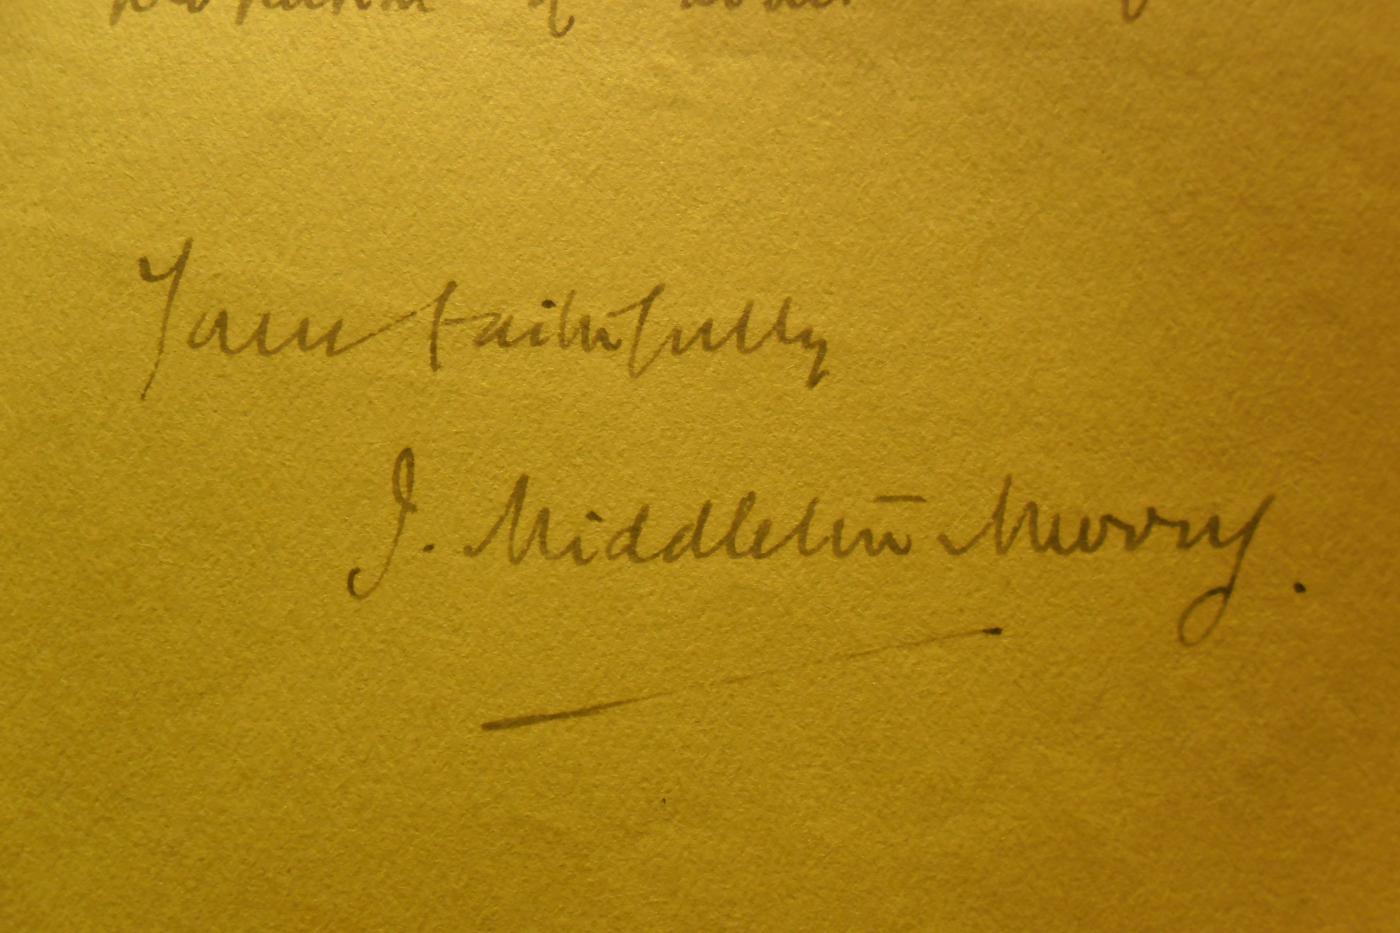 of
Yours faithfully
J. Middleton Murry.